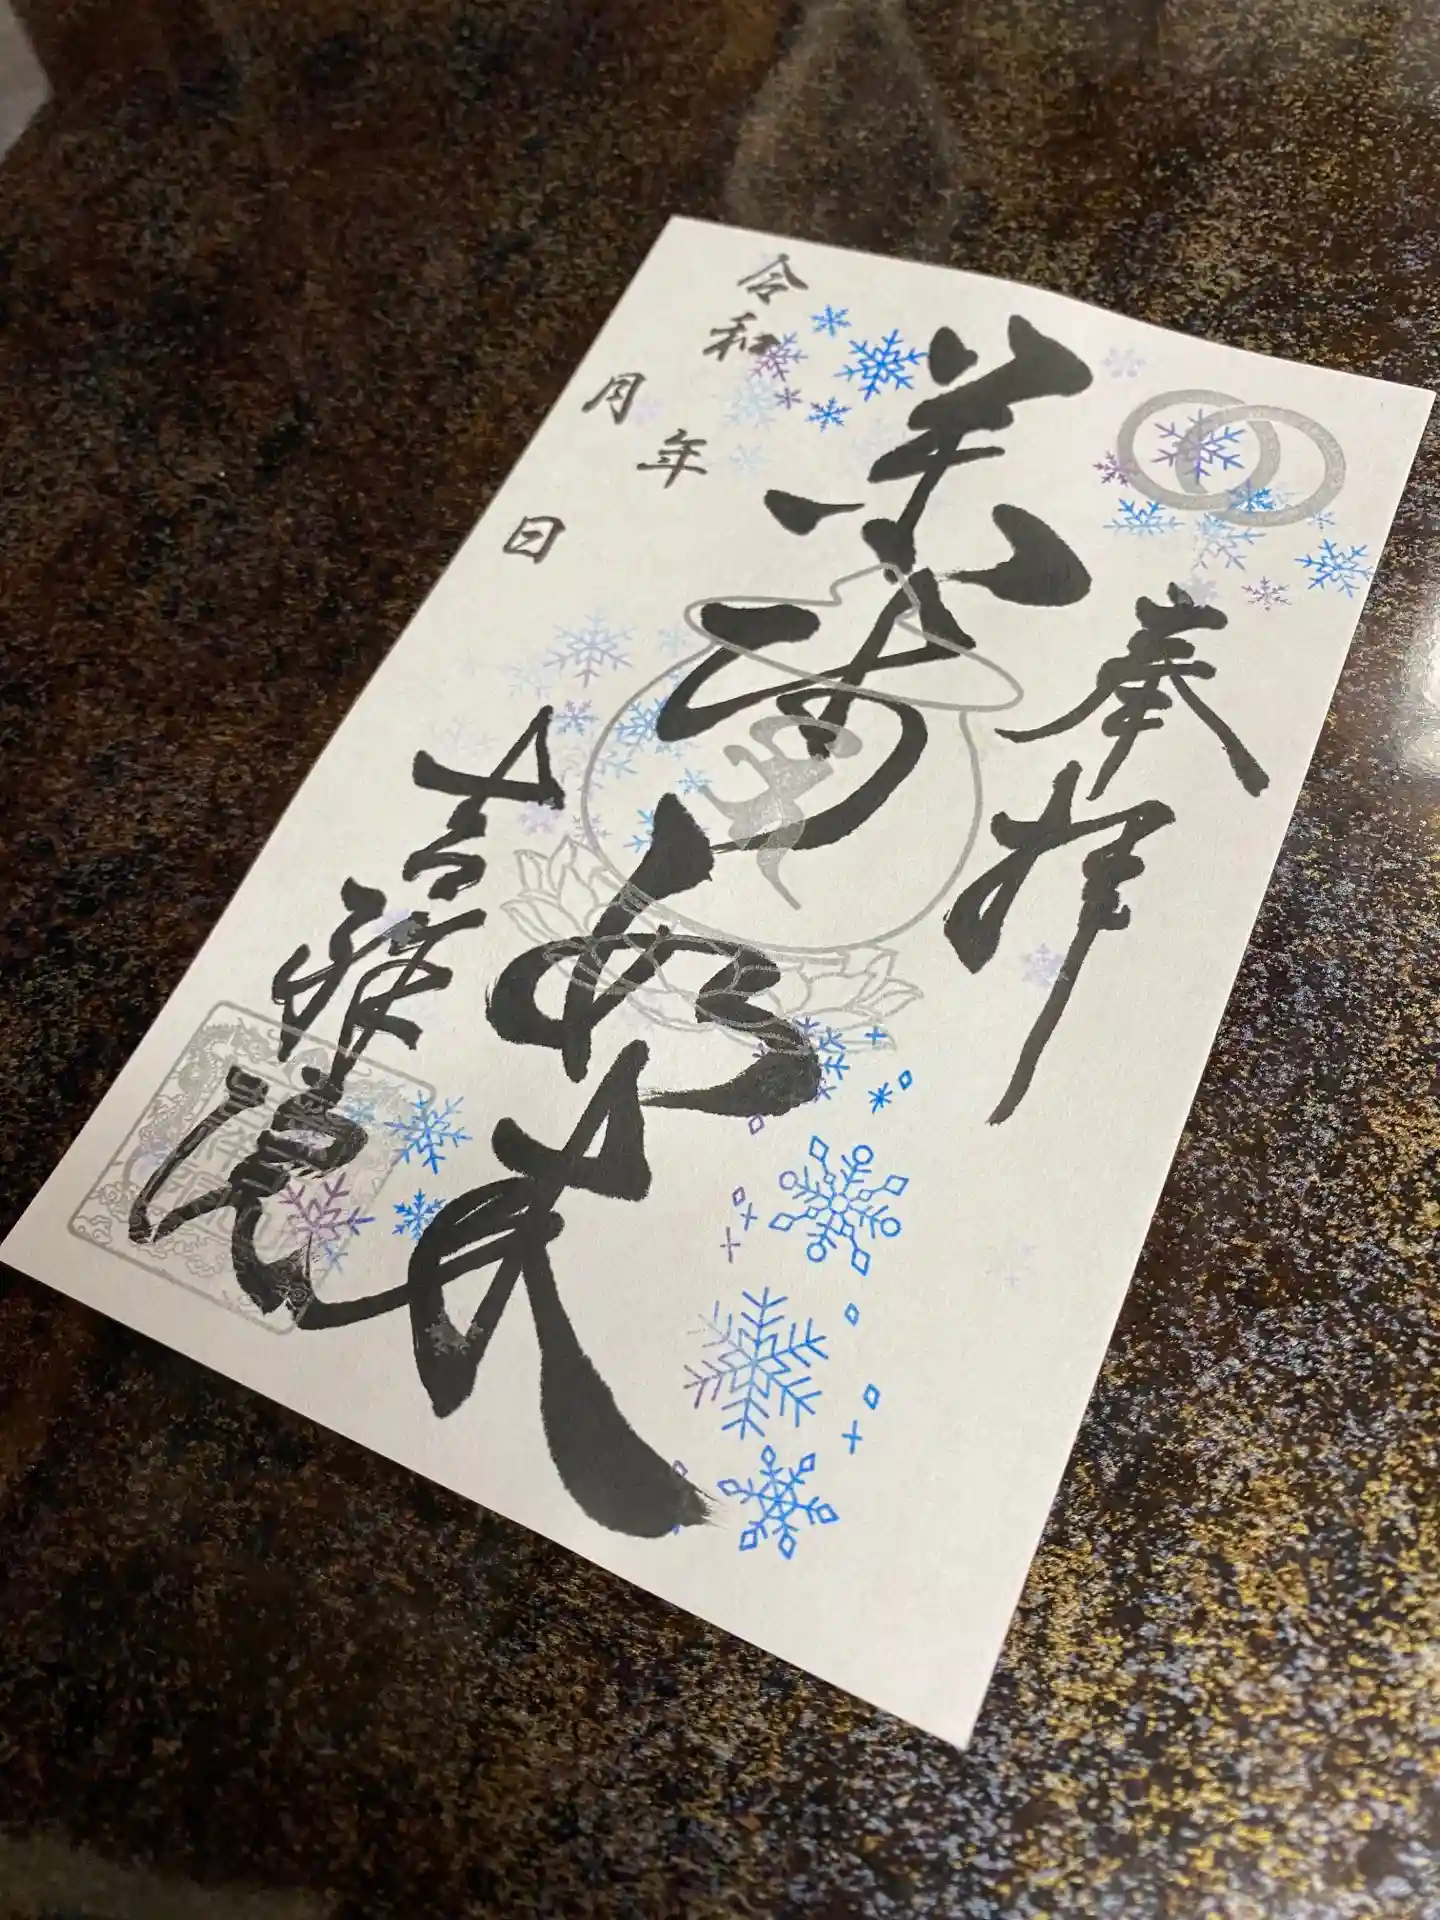 奉拝
薬師如来
令和 年
月 日
吉祥院